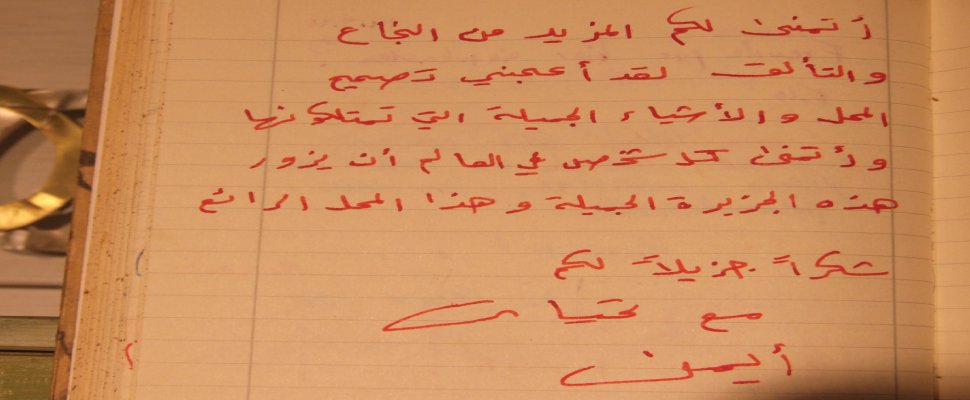 أتمنى لكم المزيد من النجاح
والتألق لقد أعجبني تصميم
المحل والأشياء الجميلة التي تمتلكونها
وأتمنى كل شخص في العالم أن يزور
هذه الجزيرة الجميلة وهذا المحل الرائع
شكراً جزيلاً لكم
مع تحيات
أيمن